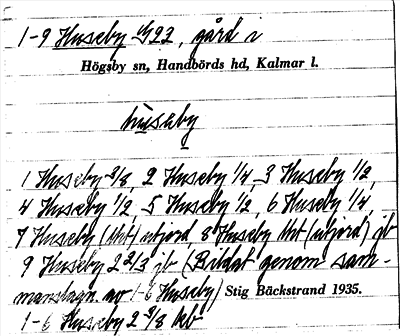 1-9 Huseby 1/4 93, gård i
Högsby sn, Handbörds hd, Kalmar l.
huseby
1 Huseby 3/8, 2 Huseby 1/4, 3 Huseby 1/2,
4 Huseby 1/2, 5 Huseby 1/2 6 Huseby 1/4,
7 Huseby utjord, 8 Huseby (utjord) jb
9 Huseby 2 2/3 jb (Bildat genom sam-
manslagn. av 1-6 Huseby) Stig Bäckstrand 1935.
1-6 Huseby 2 3/8 kb